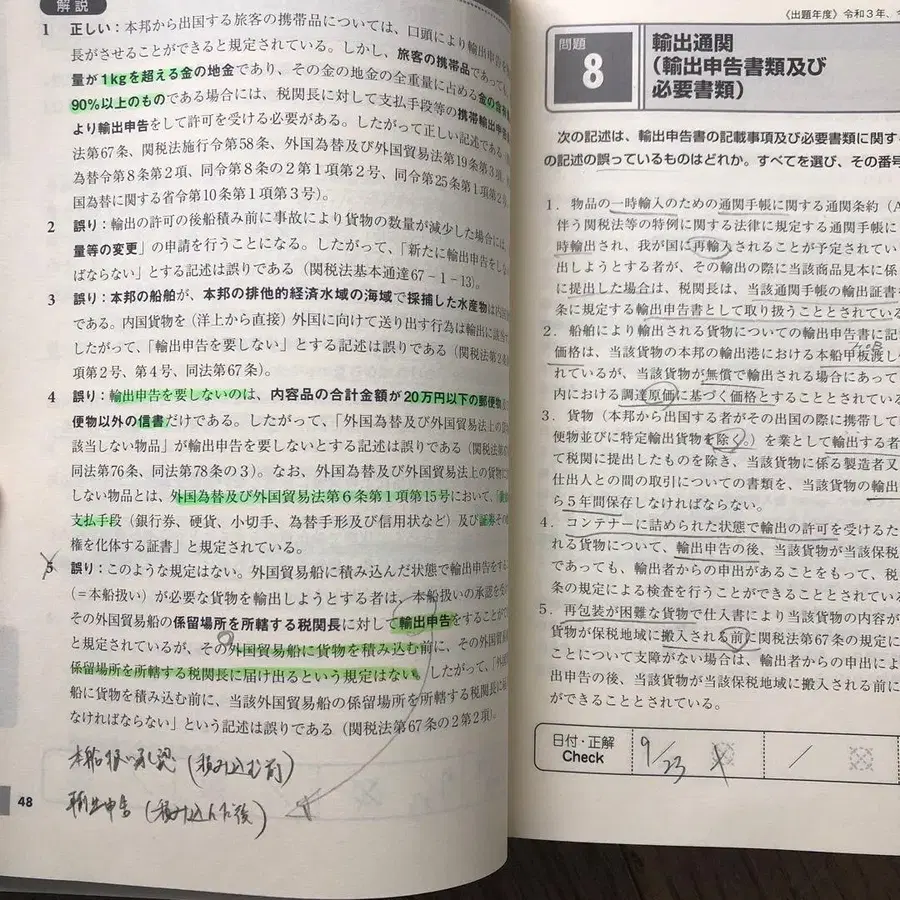 解説
1 正しい：本邦から出国する旅客の携帯品については、口頭により輸出申告を
長がさせることができると規定されている。しかし、旅客の携帯品であって
量が1kgを超える金の地金であり、その金の地金の全重量に占める金の含有
90%以上のものである場合には、税関長に対して支払手段等の携帯輸出申告
より輸出申告をして許可を受ける必要がある。したがって正しい記述である（
法第67条、関税法施行令第58条、外国為替及び外国貿易法第19条第3項、
為替令第8条第2項、同令第8条の2第1項第2号、同令第25条第1項第2
国為替に関する省令第10条第1項第3号）。
2 誤り：輸出の許可の後船積み前に事故により貨物の数量が減少した場合には、
量等の変更」の申請を行うことになる。したがって、「新たに輸出申告をし
ばならない」とする記述は誤りである（関税法基本通達67－1－13）。
3 誤り：本邦の船舶が、本邦の排他的経済水域の海域で採捕した水産物は内国
である。内国貨物を（洋上から直接）外国に向けて送り出す行為は輸出に該当
したがって、「輸出申告を要しない」とする記述は誤りである（関税法第2条
項第2号、第4号、同法第67条）。
4 誤り：輸出申告を要しないのは、内容品の合計金額が20万円以下の郵便物
便物以外の信書だけである。したがって、「外国為替及び外国貿易法上の貨
該当しない物品」が輸出申告を要しないとする記述は誤りである（関税法
同法第76条、同法第78条の3）。なお、外国為替及び外国貿易法上の貨物に
しない物品とは、外国為替及び外国貿易法第6条第1項第15号において、「
支払手段（銀行券、硬貨、小切手、為替手形及び信用状など）及び証券その
権を化体する証書」と規定されている。
5 誤り：このような規定はない。外国貿易船に積み込んだ状態で輸出申告をす
（＝本船扱い）が必要な貨物を輸出しようとする者は、本船扱いの承認を受
その外国貿易船の係留場所を所轄する税関長に対して輸出申告をすることが
と規定されているが、その外国貿易船に貨物を積み込む前に、その外国貿
係留場所を所轄する税関長に届け出るという規定はない。したがって、「外国
船に貨物を積み込む前に、当該外国貿易船の係留場所を所轄する税関長に届
なければならない」という記述は誤りである（関税法第67条の2第2項）。
本船扱い承認（積み込む前）
輸出申告（積み込んだ後）
48
〈出題年度〉令和3年、
問題
8
輸出通関
（輸出申告書類及び
必要書類）
次の記述は、輸出申告書の記載事項及び必要書類に関す
の記述の誤っているものはどれか。すべてを選び、その番号
1．物品の一時輸入のための通関手帳に関する通関条約（A
伴う関税法等の特例に関する法律に規定する通関手帳に
時輸出され、我が国に再輸入されることが予定されてい
出しようとする者が、その輸出の際に当該商品見本に係
に提出した場合は、税関長は、当該通関手帳の輸出証書
条に規定する輸出申告書として取り扱うこととされてい
2．船舶により輸出される貨物についての輸出申告書に記
価格は、当該貨物の本邦の輸出港における本船甲板渡し
FOB
れているが、当該貨物が無償で輸出される場合にあって
内における調達原価に基づく価格とすることとされてい
3．貨物（本邦から出国する者がその出国の際に携帯して
便物並びに特定輸出貨物を除く。）を業として輸出する者
て税関に提出したものを除き、当該貨物に係る製造者又
仕出人との間の取引についての書類を、当該貨物の輸出
ら5年間保存しなければならない。
4．コンテナーに詰められた状態で輸出の許可を受けるた
れる貨物について、輸出申告の後、当該貨物が当該保税
であっても、輸出者からの申出があることをもって、税
条の規定による検査を行うことができることとされてい
5．再包装が困難な貨物で仕入書により当該貨物の内容が
貨物が保税地域に搬入される前に関税法第67条の規定に
ことについて支障がない場合は、輸出者からの申出によ
出申告の後、当該貨物が当該保税地域に搬入される前に
ができることとされている。
日付・正解
Check
9/23